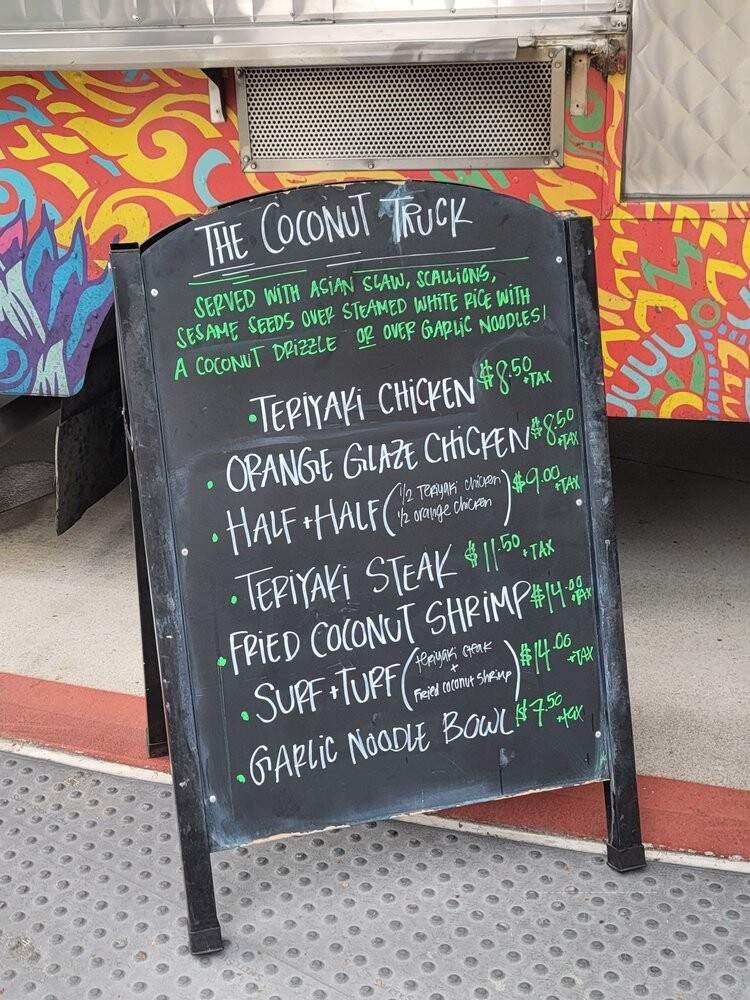 THE COCONUT TRUCK
SERVED WITH ASIAN SLAW, SCALLIONS,
SESAME SEEDS OVER STEAMED WHITE RICE WITH
A COCONUT DRIZZLE OR OVER GARLIC NOODLES!
• TERIYAKI CHICKEN $8.50 +TAX
• ORANGE GLAZE CHICKEN $8.50 +TAX
• HALF + HALF (1/2 Teriyaki chicken 1/2 orange chicken) $9.00 +TAX
• TERIYAKI STEAK $11.50 +TAX
• FRIED COCONUT SHRIMP $14.00 +TAX
• SURF + TURF (teriyaki steak + Fried coconut shrimp) $14.00 +TAX
• GARLIC NOODLE BOWL $7.50 +tax